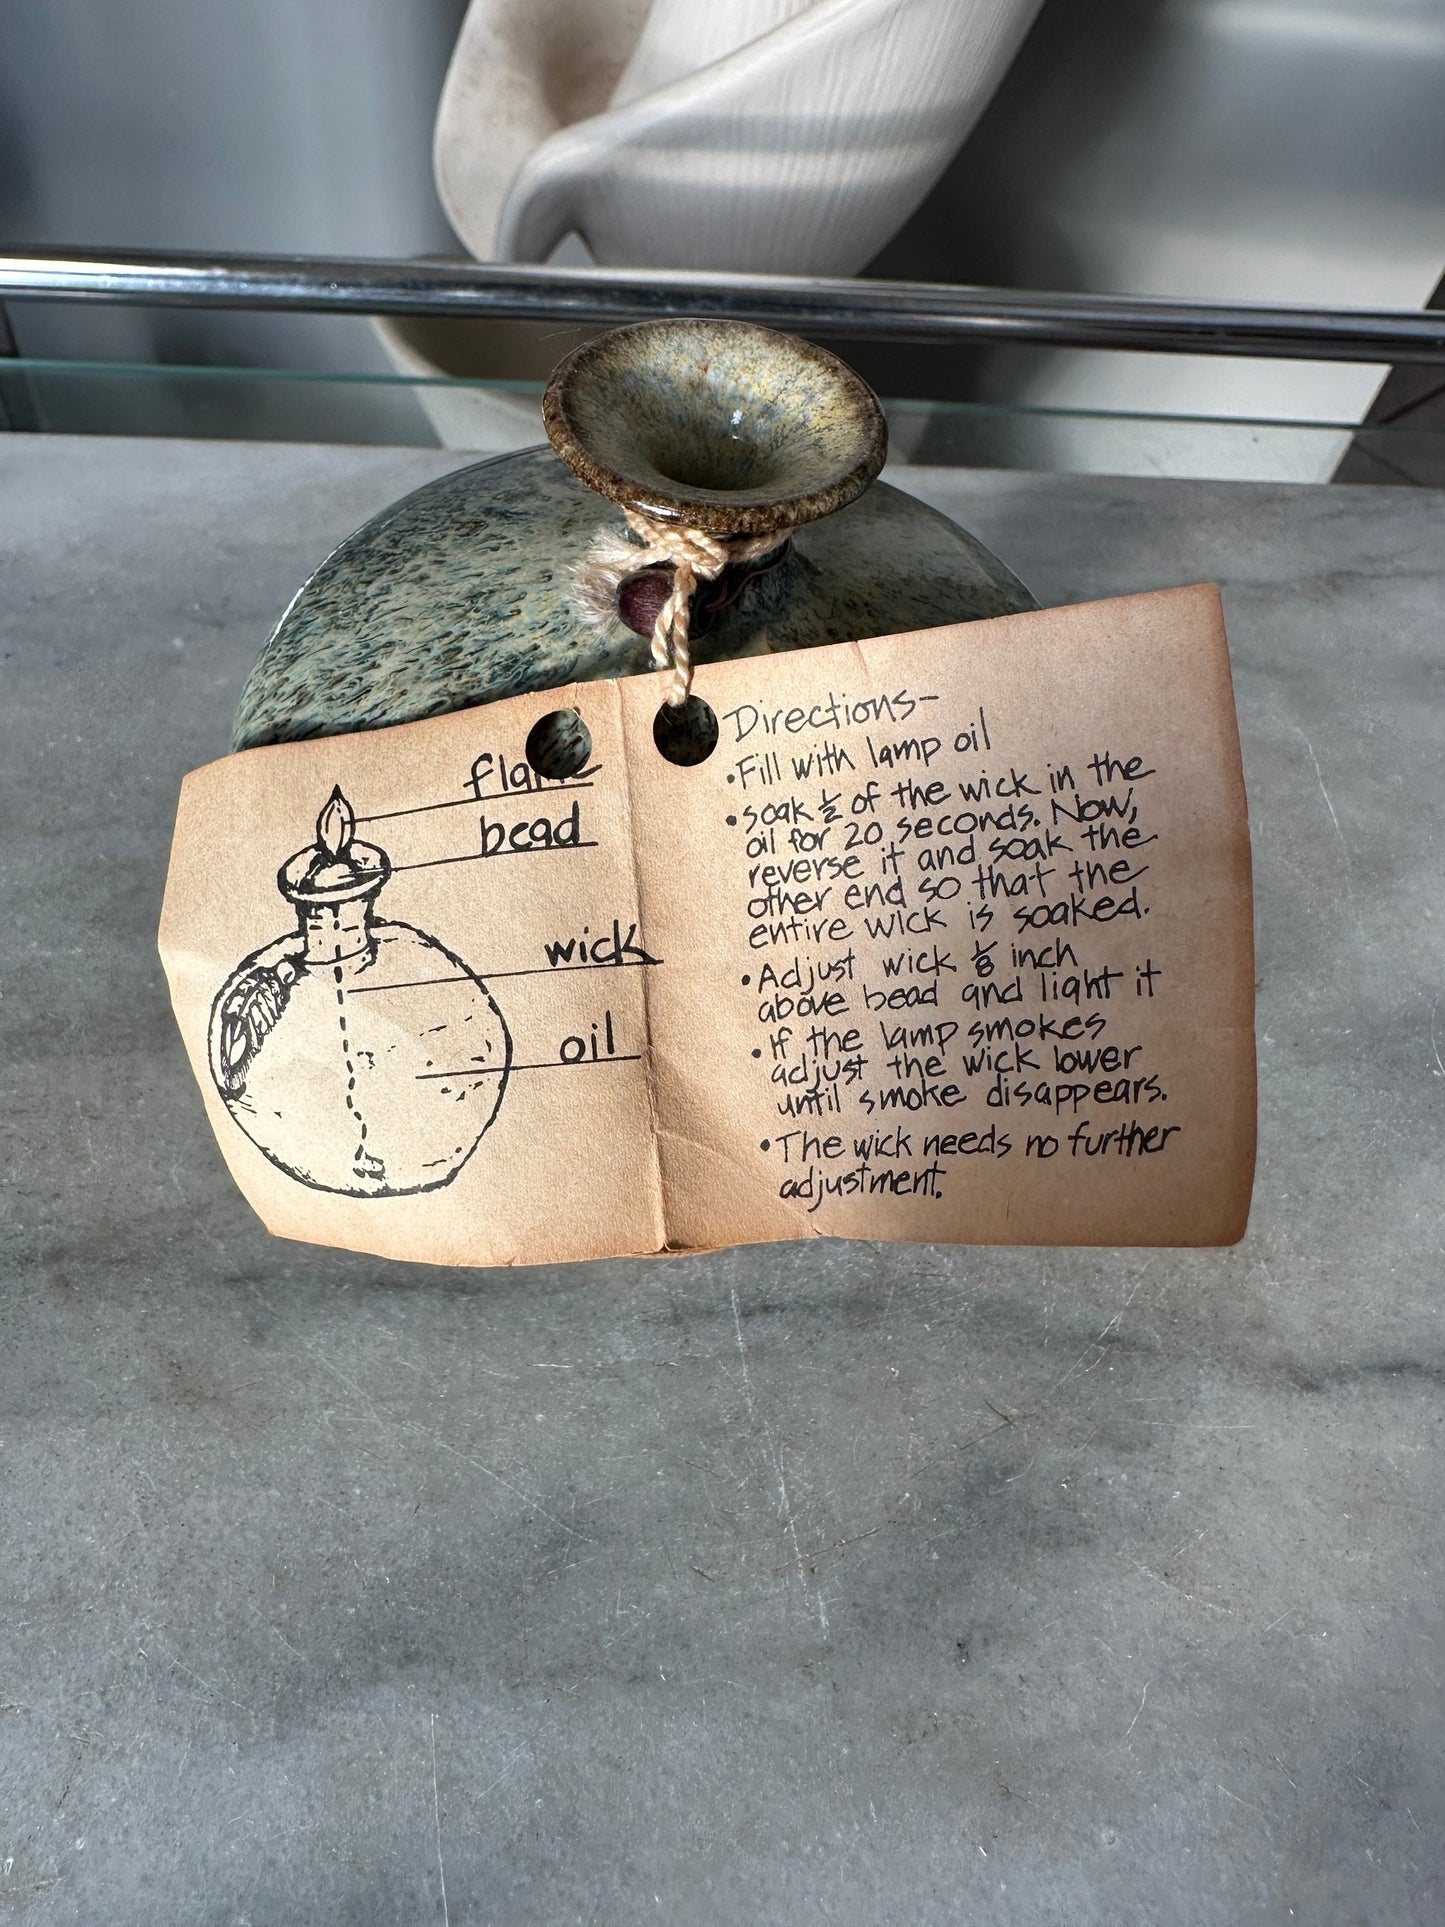 flame
bead
wick
oil
Directions-
•Fill with lamp oil
•soak ½ of the wick in the
oil for 20 seconds. Now,
reverse it and soak the
other end so that the
entire wick is soaked.
•Adjust wick ⅛ inch
above bead and light it
•If the lamp smokes
adjust the wick lower
until smoke disappears.
•The wick needs no further
adjustment.